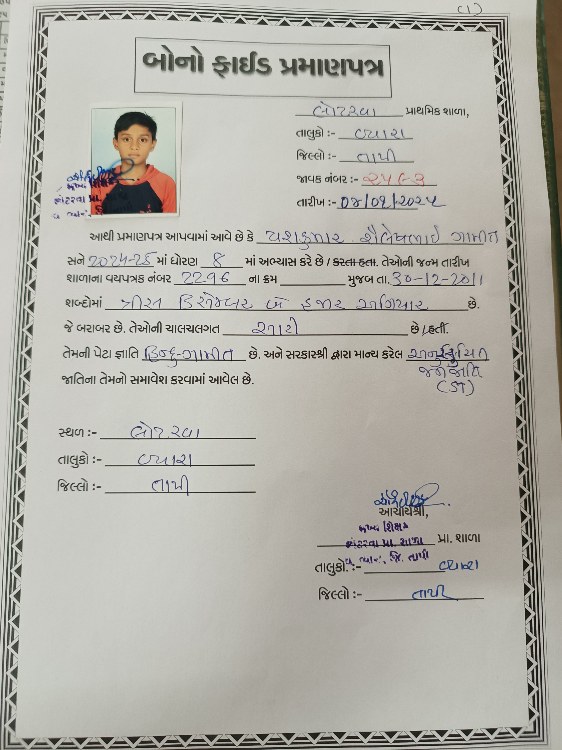 (1)
બોનો ફાઈડ પ્રમાણપત્ર
બોરખડા પ્રાથમિક શાળા,
તાલુકો :- વ્યારા
જિલ્લો :- તાપી
જાવક નંબર :-
તારીખ :- 04/01/2025
આથી પ્રમાણપત્ર આપવામાં આવે છે કે યશકુમાર શૈલેષભાઈ ગામીત
સને 2024-25 માં ધોરણ 8 માં અભ્યાસ કરે છે / કરતા હતા. તેઓની જન્મ તારીખ
શાળાના વયપત્રક નંબર 2296 ના ક્રમ મુજબ તા. 30-12-2011
શબ્દોમાં ત્રીસ ડિસેમ્બર બે હજાર અગિયાર છે.
જે બરાબર છે. તેઓની ચાલચલગત સારી છે / હતી.
તેમની પેટા જ્ઞાતિ હિન્દુ-ગામીત છે. અને સરકારશ્રી દ્વારા માન્ય કરેલ અનુસુચિત
જનજાતિ
જાતિના તેમનો સમાવેશ કરવામાં આવેલ છે.
(ST)
સ્થળ :-
તાલુકો :- વ્યારા
જિલ્લો :- તાપી
આચાર્યશ્રી,
મુખ્ય શિક્ષક
પ્રા. શાળા પ્રા. શાળા
તાલુકો :- વ્યારા
તા. વ્યારા, જિ. તાપી
જિલ્લો :- તાપી